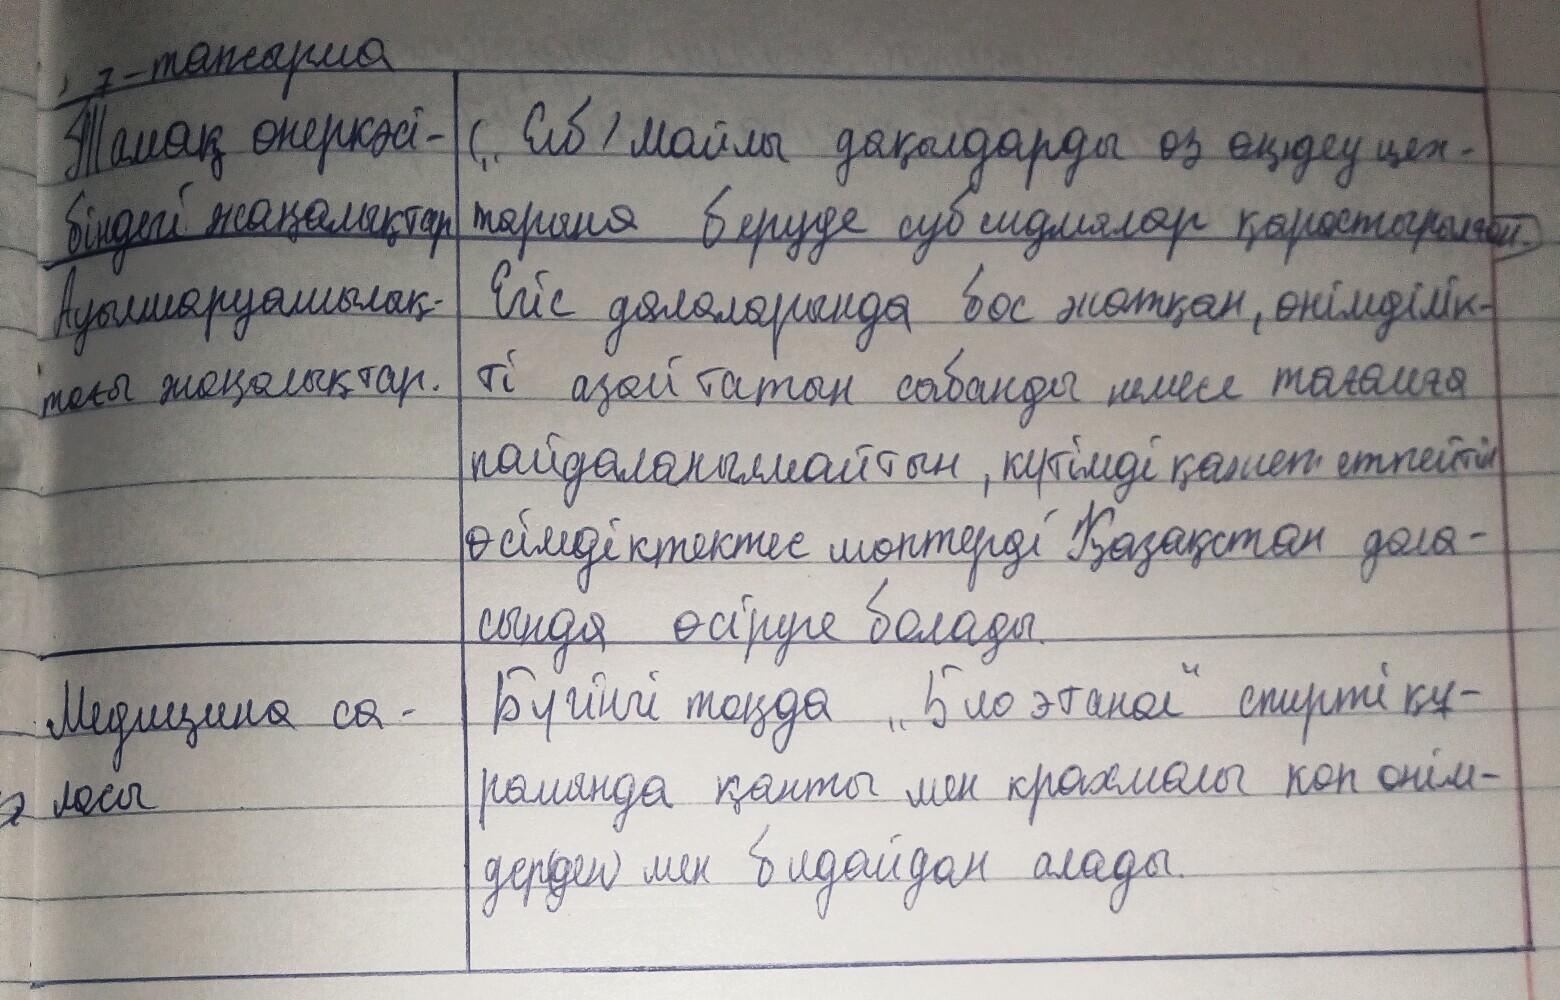 7-тапсырма
Тамақ өнеркәсі-
біндегі жаңалықтар
(„ Еіб / Майлы дақылдарды өз өңдеу цех-
тарына беруде субсидиялар қарастырылған.
Ауылшаруашылақ-
тағы жаңалықтар.
Егіс далаларында бос жатқан, өнімділік-
ті азайтатын сабанды немесе тағамға
пайдаланылмайтын, күтімді қажет етпейтін
өсімдіктектес шөптерді Қазақстан дала-
сында өсіруге болады.
Медицина са-
ласы
Бүгінгі таңда „Биоэтанол" спирті құ-
рамында қанты мен крахмалы көп өнім-
дер(ден) мен бидайдан алады.